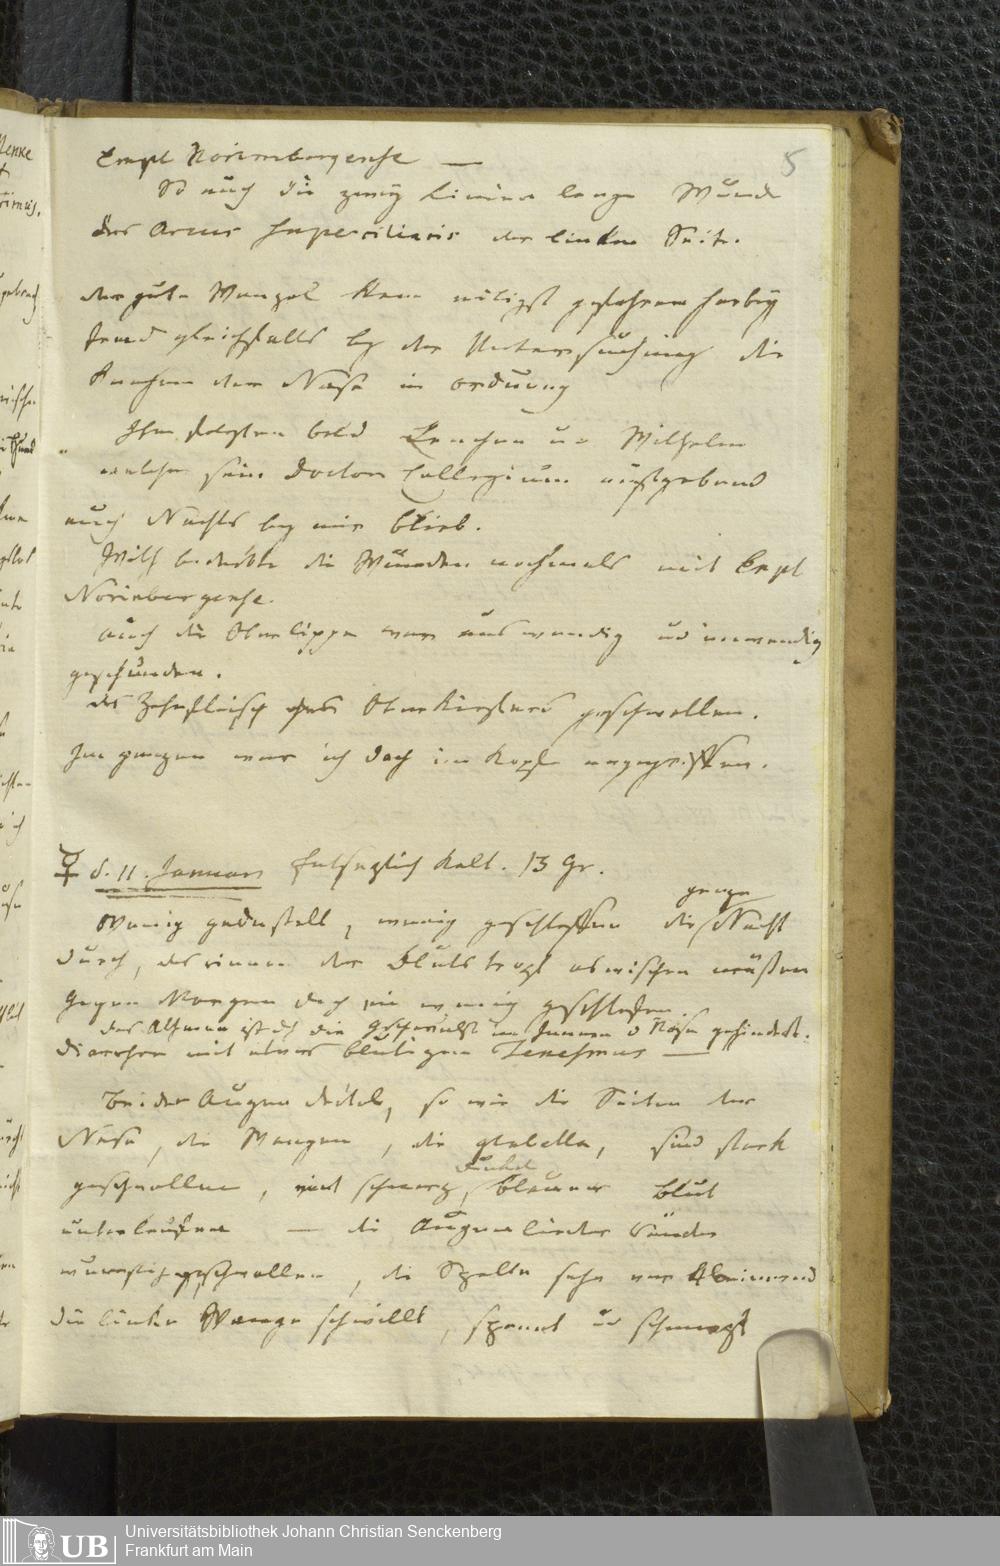 5
Empl Norimbergense —
So auch die zwey Linien lange Wunde
des Arcus superciliaris der linken Seite.
der gute Wenzel kam eiligst gefahren herbey
fand gleichfalls by der Untersuchung die
Knochen der Nase in Ordnung
Ihm folgten bald Lenchen und Wilhelm
welcher sein Doctor Collegium
auch Nachts bey mir blieb.
Wilh bedeckte die Wunden nochmals mit Empl
Norimbergense.
auch die Oberlippe war auswendig und inwendig
geschunden.
das Zahnfleisch des Oberkiefers geschwollen.
Im ganzen war ich doch im Kopfe angegriffen.
♀ d. 11. Januar entsezlich kalt. 13 Gr.
Wenig geduselt, wenig geschlaffen die ganze Nacht
durch, der Bluts tropf abwischen müssen
Gegen Morgen doch ein wenig geschlafen.
das Athmen ist dch die Geschwulst im Innern d Nase gehindert.
Diarrhee mit etwas blutigem Tenesmus —
Beider Augen deckel, so wie die Seiten der
Nase, die Wangen, die glabella, sind stark
geschwollen, mit schwarz, dunkel blauem Blut
unterlaufen — die Augenlieder Ränder
wurstig geschwollen, die Spalte sehr verkleinernd
die linke Wange schwillt, spannt und schmerzt
Universitätsbibliothek Johann Christian Senckenberg
Frankfurt am Main
UB